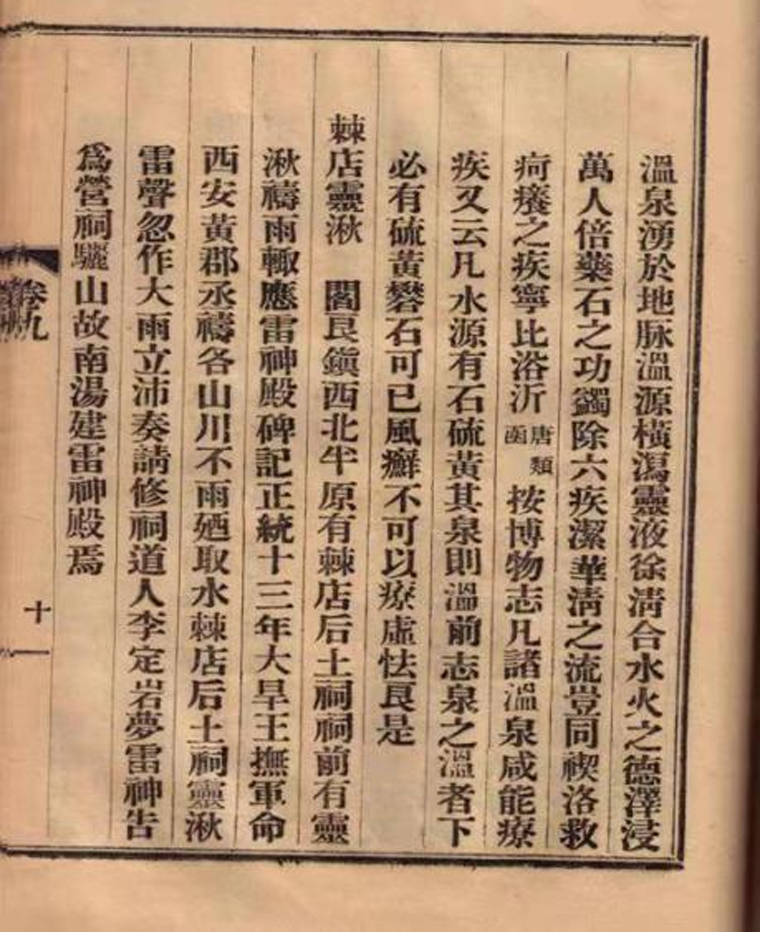 溫泉湧於地脉溫源橫瀉靈液徐淸合水火之德澤浸
萬人倍藥石之功蠲除六疾潔華淸之流豈同禊洛救
疴癢之疾寧比浴沂唐類函按博物志凡諸溫泉咸能療
疾又云凡水源有石硫黃其泉則溫前志泉之溫者下
必有硫黃礬石可已風癬不可以療虛怯良是
棘店靈湫 閻良鎭西北半原有棘店后土祠祠前有靈
湫禱雨輙應雷神殿碑記正統十三年大旱王撫軍命
西安黃郡丞禱各山川不雨廼取水棘店后土祠靈湫
雷聲忽作大雨立沛奏請修祠道人李定岩夢雷神吿
爲營祠驪山故南湯建雷神殿焉
卷九
十